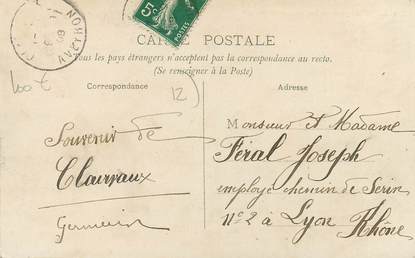 5c
AVEYRON
CARTE POSTALE
Tous les pays étrangers n'acceptent pas la correspondance au recto.
(Se renseigner à la Poste)
Correspondance
Adresse
12
Souvenir de
Clairvaux
Monsieur et Madame
Féral Joseph
employé chemin de Serin
Nº 2 à Lyon
Rhône